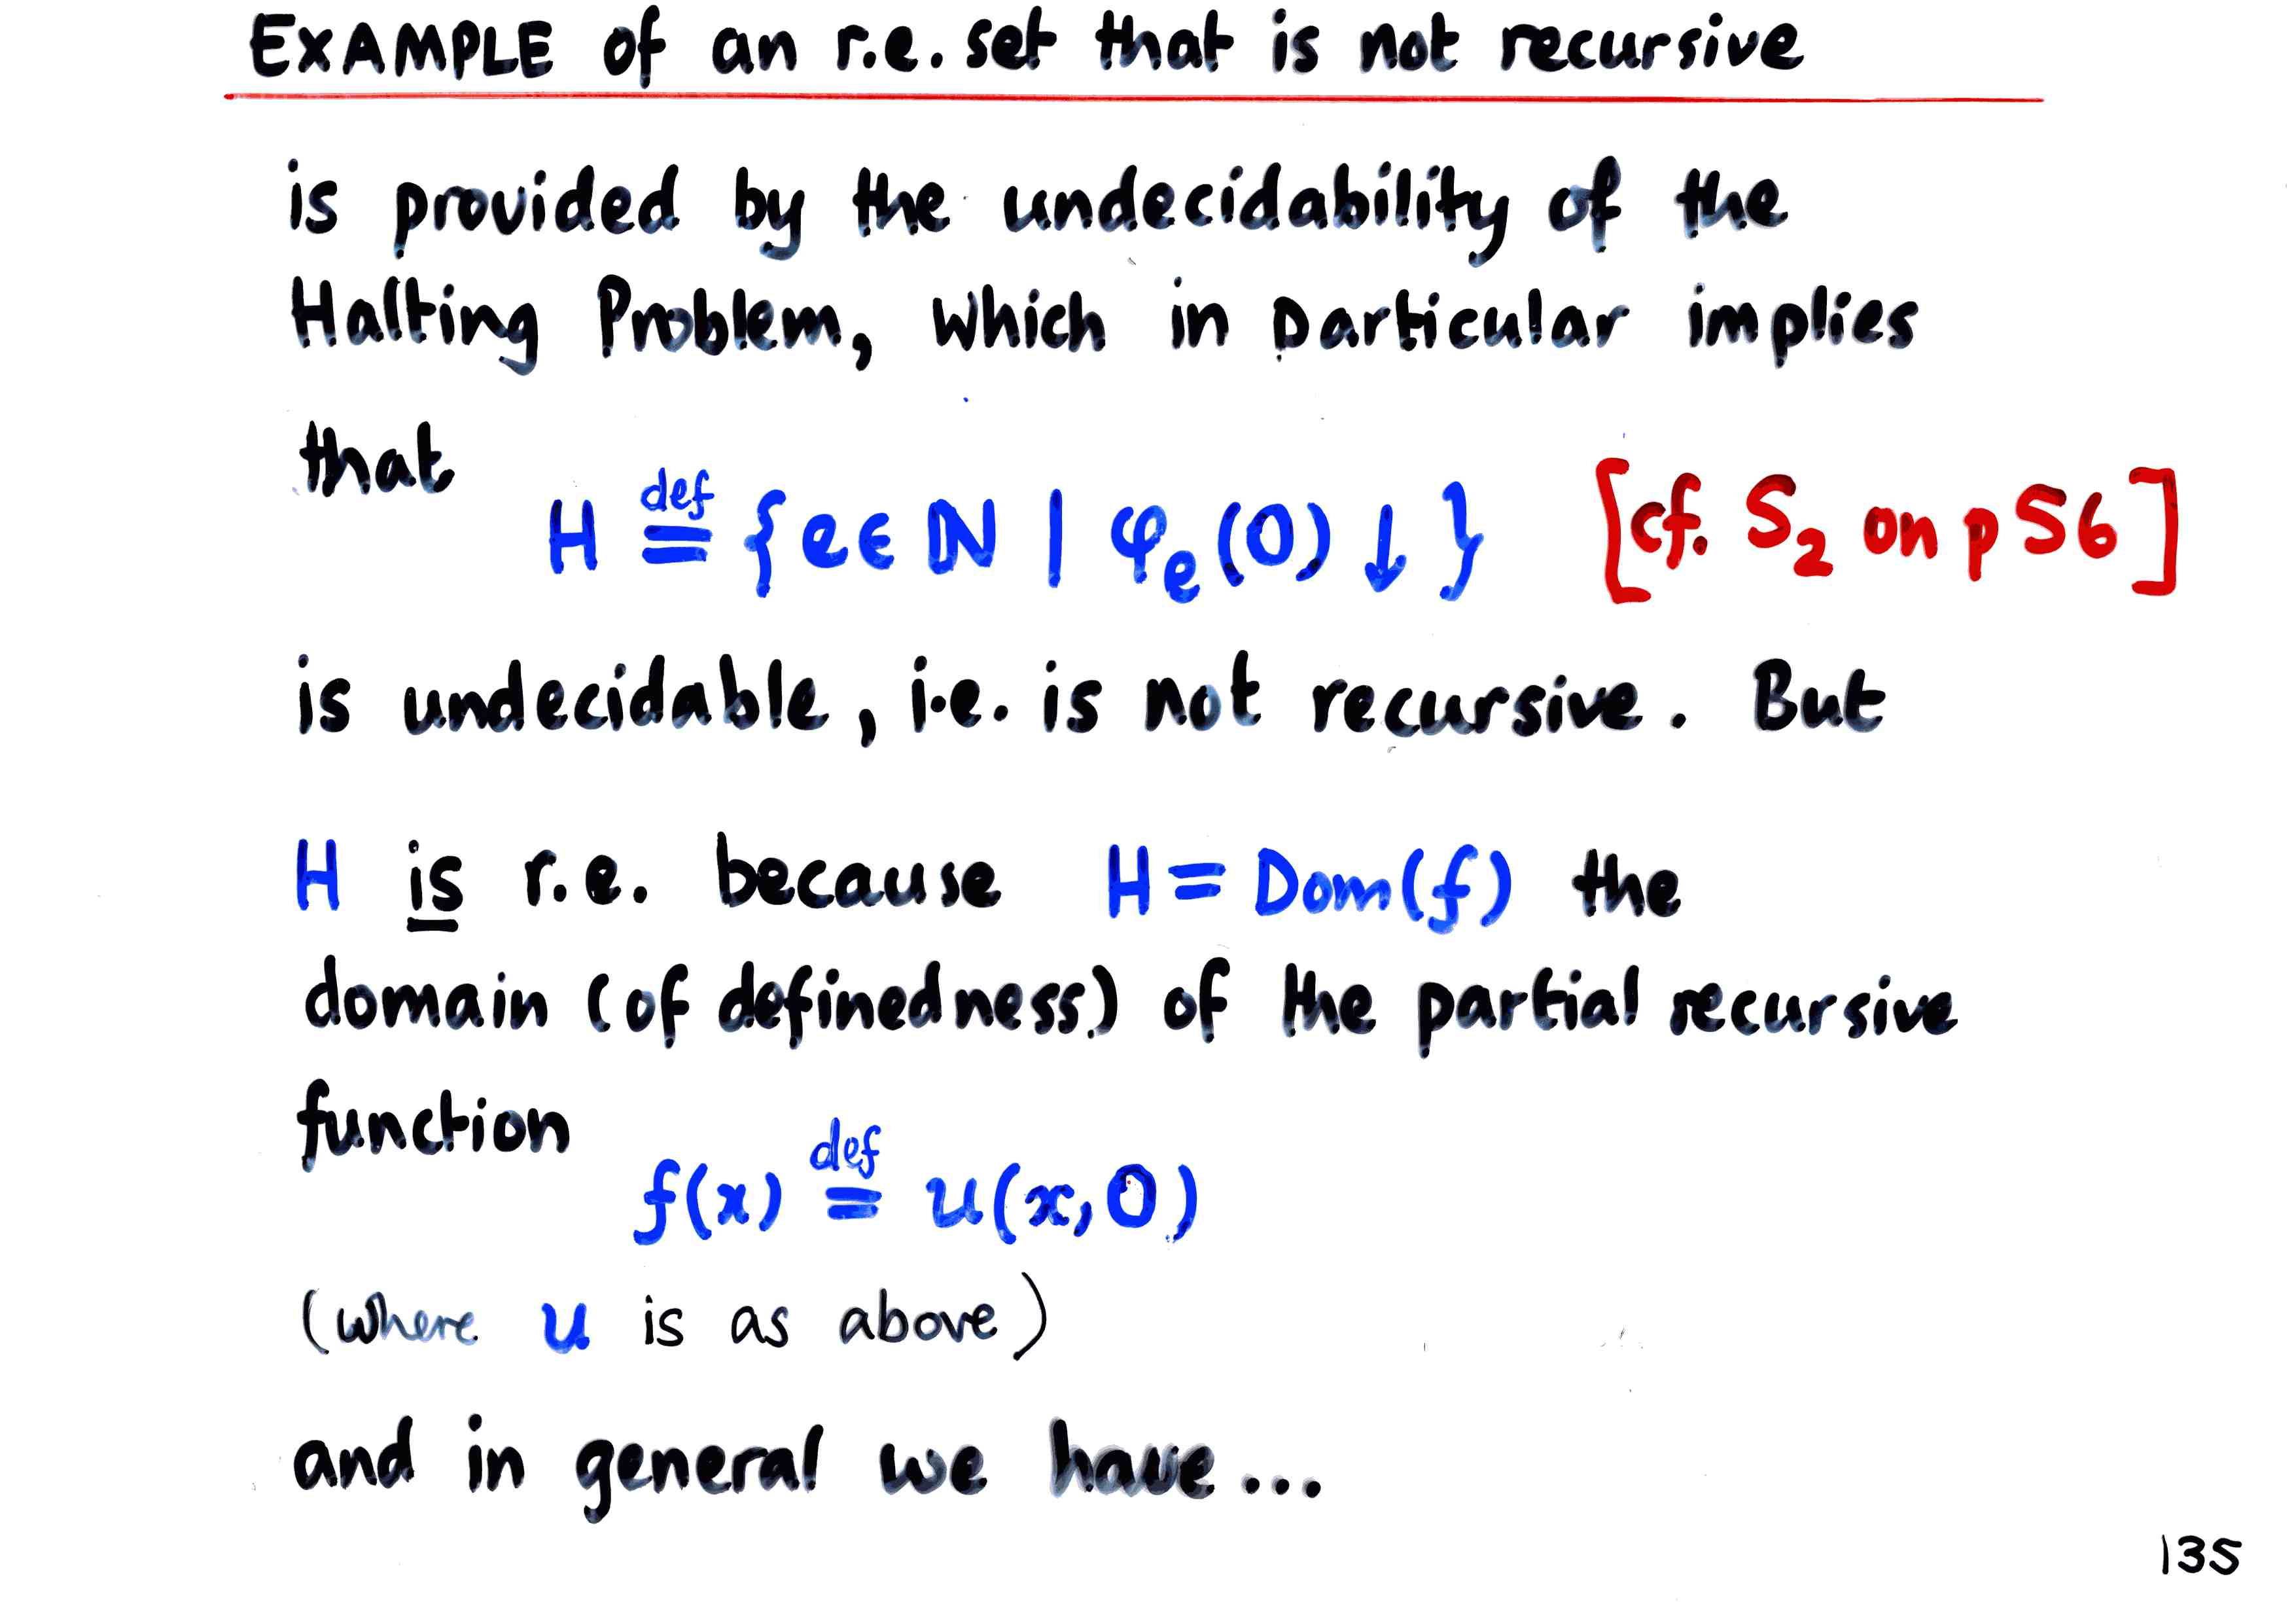 EXAMPLE of an r.e. set that is not recursive
is provided by the undecidability of the
Halting Problem, which in particular implies
that
H def= {e∈ℕ | φₑ(0)↓} [cf. S₂ on p 56]
is undecidable, i.e. is not recursive. But
H is r.e. because H = Dom(f) the
domain (of definedness) of the partial recursive
function
f(x) def= u(x,0)
(where u is as above)
and in general we have...
135